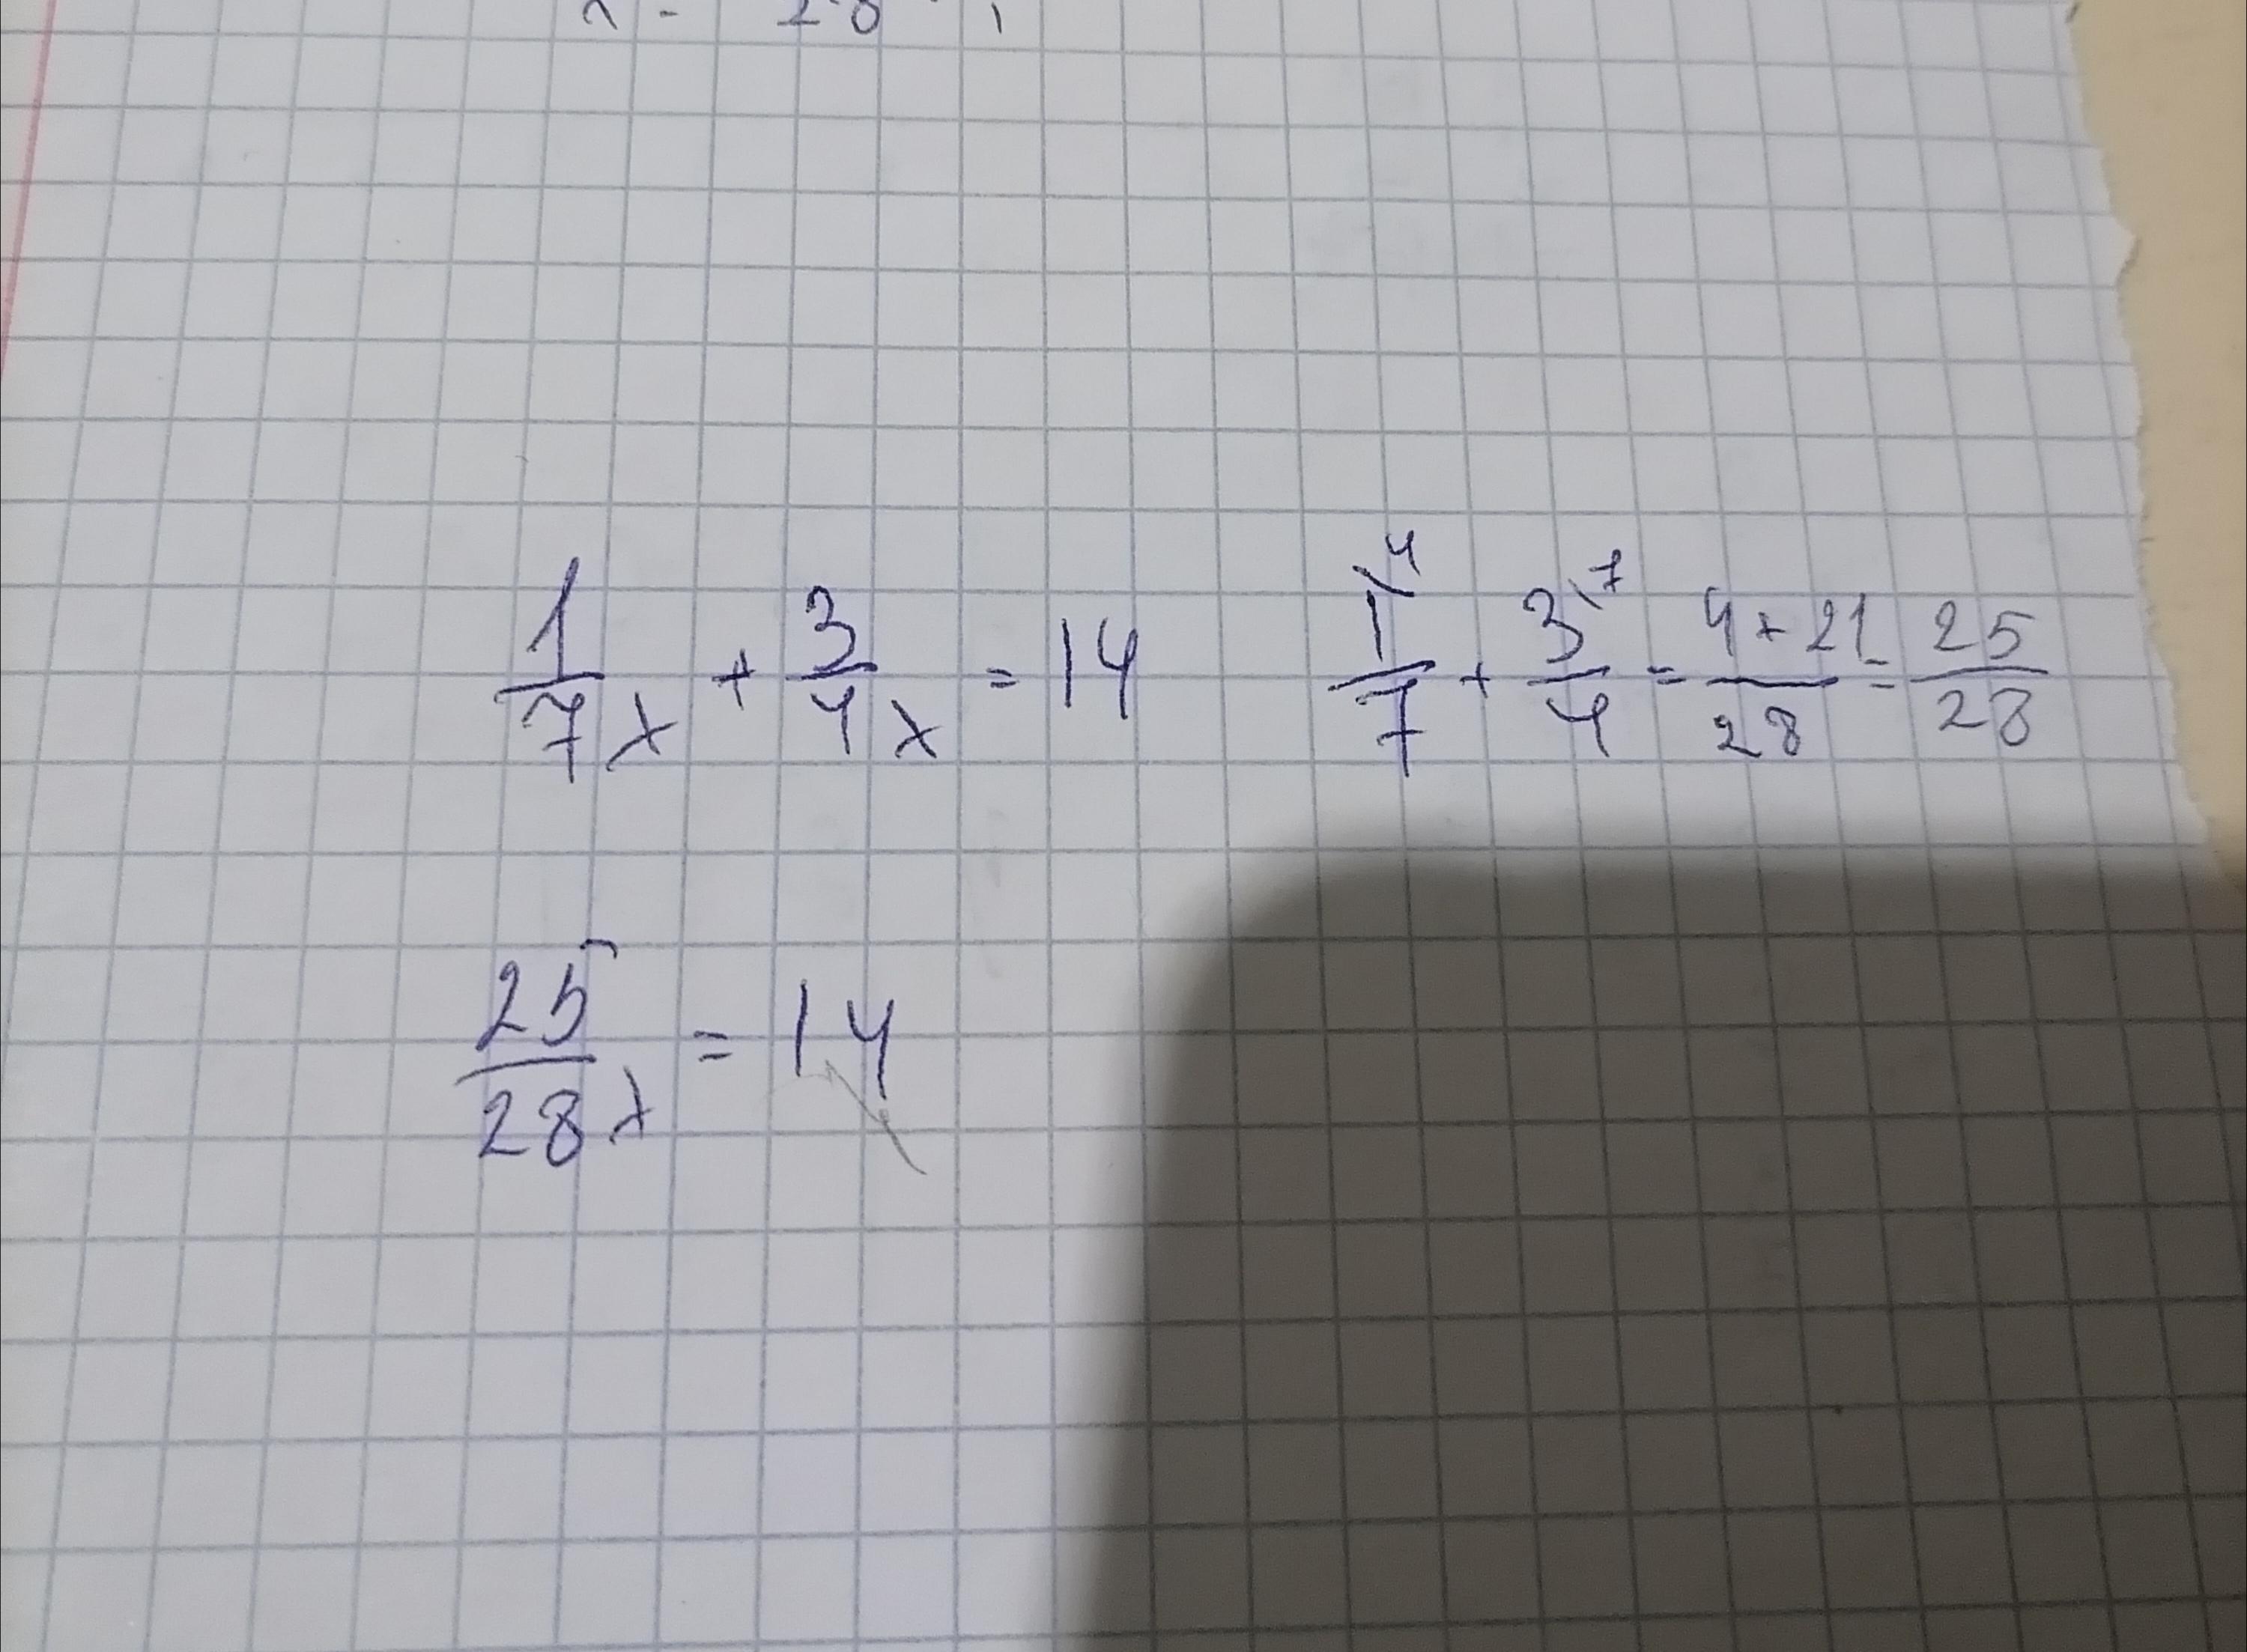 1/7 x + 3/4 x = 14    1\4/7 + 3\7/4 = 4+21/28 = 25/28
25/28 x = 14